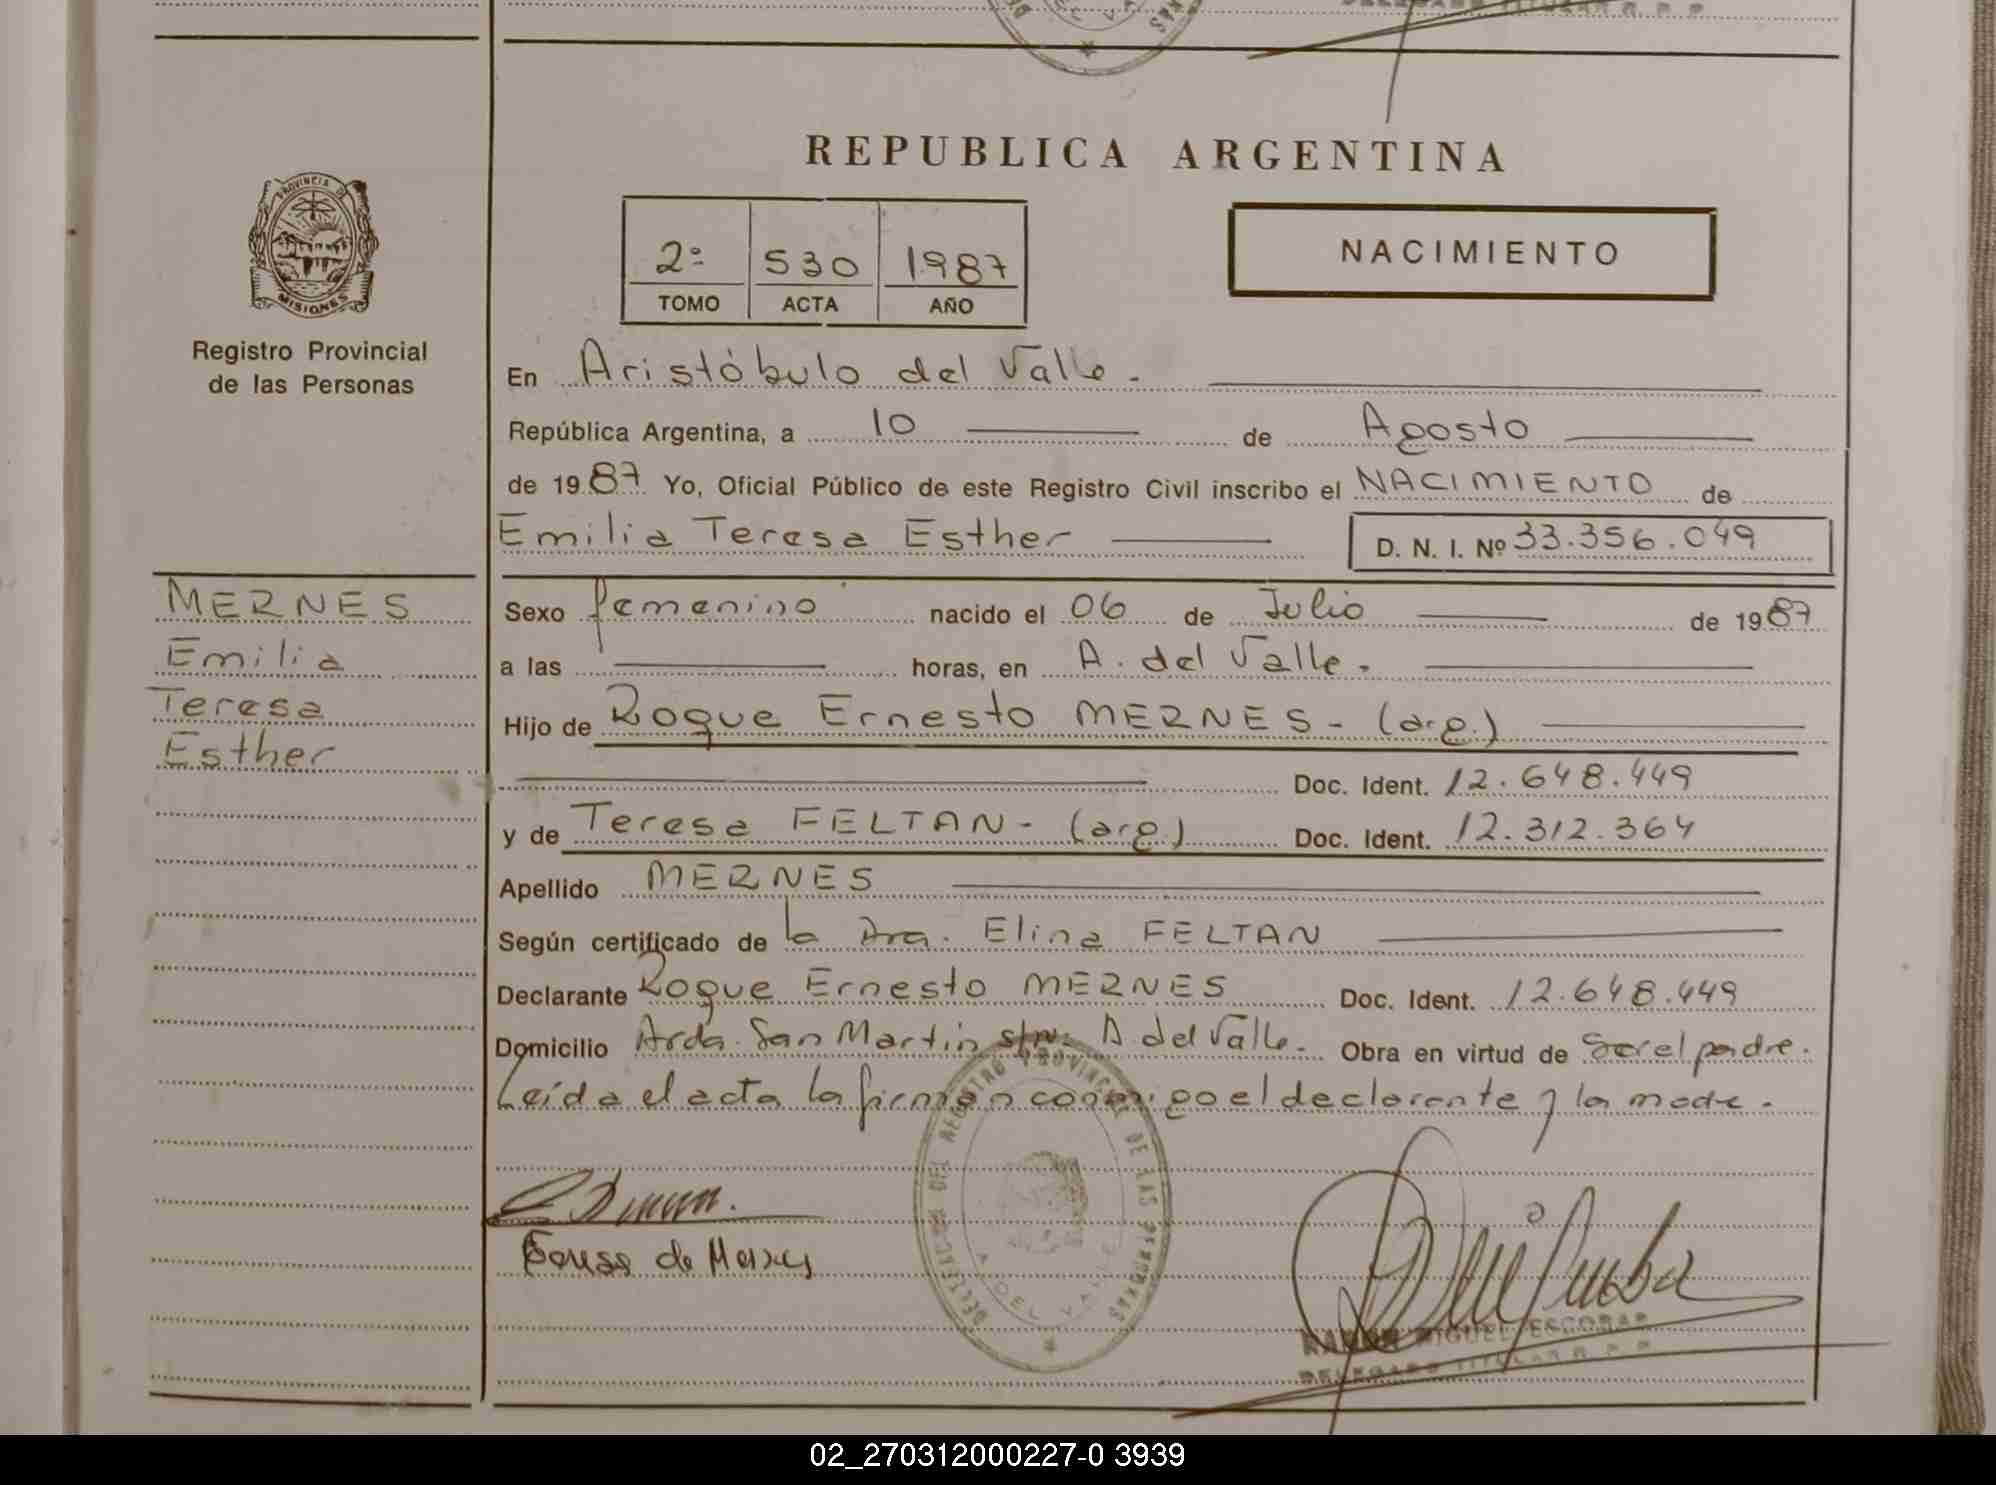 DELEGADO TITULAR R. P. P.
REPUBLICA ARGENTINA
PROVINCIA DE
MISIONES
Registro Provincial
de las Personas
2º 530 1987
TOMO ACTA AÑO
NACIMIENTO
En Aristóbulo del Valle.
República Argentina, a 10 de Agosto
de 1987 Yo, Oficial Público de este Registro Civil inscribo el NACIMIENTO de
Emilia Teresa Esther D. N. I. Nº 33.356.049
MERNES
Emilia
Teresa
Esther
Sexo femenino nacido el 06 de Julio de 1987
a las horas, en A. del Valle.
Hijo de Roque Ernesto MERNES - (arg.)
Doc. Ident. 12.648.449
y de Teresa FELTAN - (arg.) Doc. Ident. 12.312.364
Apellido MERNES
Según certificado de la Dra. Elina FELTAN
Declarante Roque Ernesto MERNES Doc. Ident. 12.648.449
Domicilio Avda. San Martin s/nº A del Valle. Obra en virtud de Ser el padre.
Leída el acta la firman conmigo el declarante y la madre.
DELEGADO DEL REGISTRO PROVINCIAL DE LAS PERSONAS
A. DEL VALLE
de
RAMON MIGUEL ESCOBAR
DELEGADO TITULAR R. P. P.
02_270312000227-0 3939